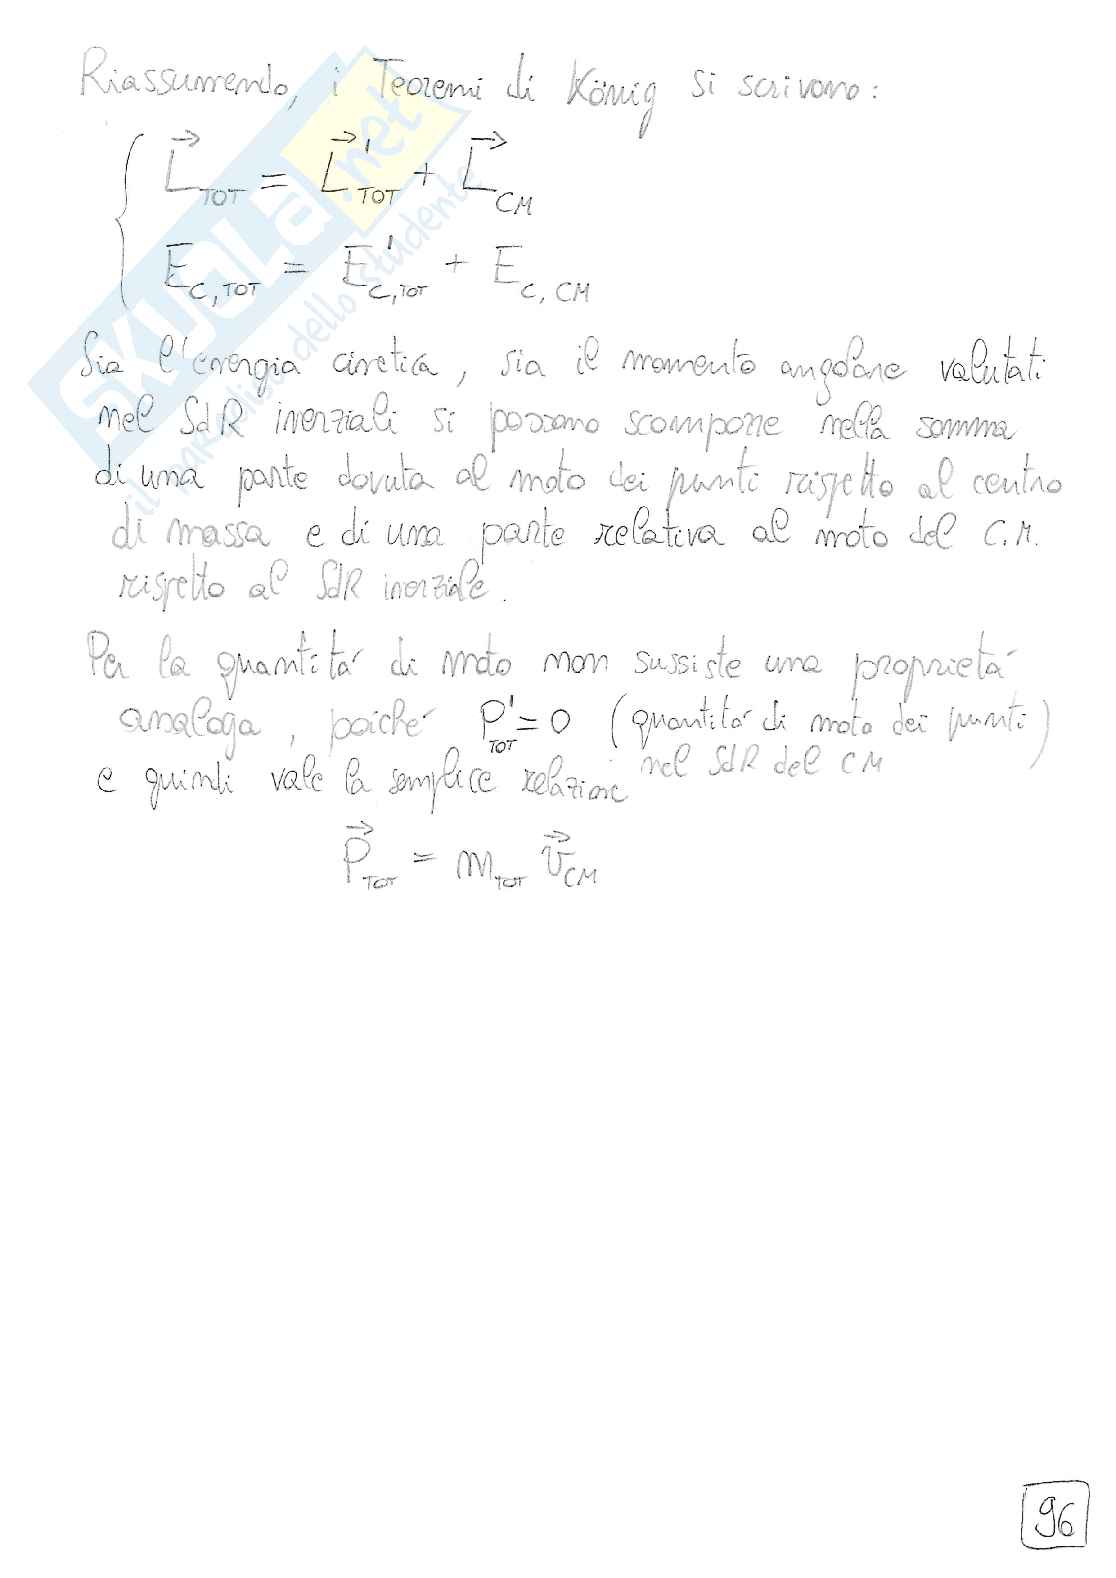 Riassumendo, i Teoremi di König si scrivono:
L⃗_TOT = L⃗'_TOT + L⃗_CM
E_C,TOT = E'_C,TOT + E_C,CM
Sia l'energia cinetica, sia il momento angolare valutati
nel SdR inerziali si possono scomporre nella somma
di una parte dovuta al moto dei punti rispetto al centro
di massa e di una parte relativa al moto del C.M.
rispetto al SdR inerziale.
Per la quantitá di moto non sussiste una proprietá
analoga, poiché P'_TOT = 0 (quantitá di moto dei punti)
nel SdR del CM
e quindi vale la semplice relazione
P⃗_TOT = m_TOT v⃗_CM
96
SKUOLA.net
il paradiso dello studente